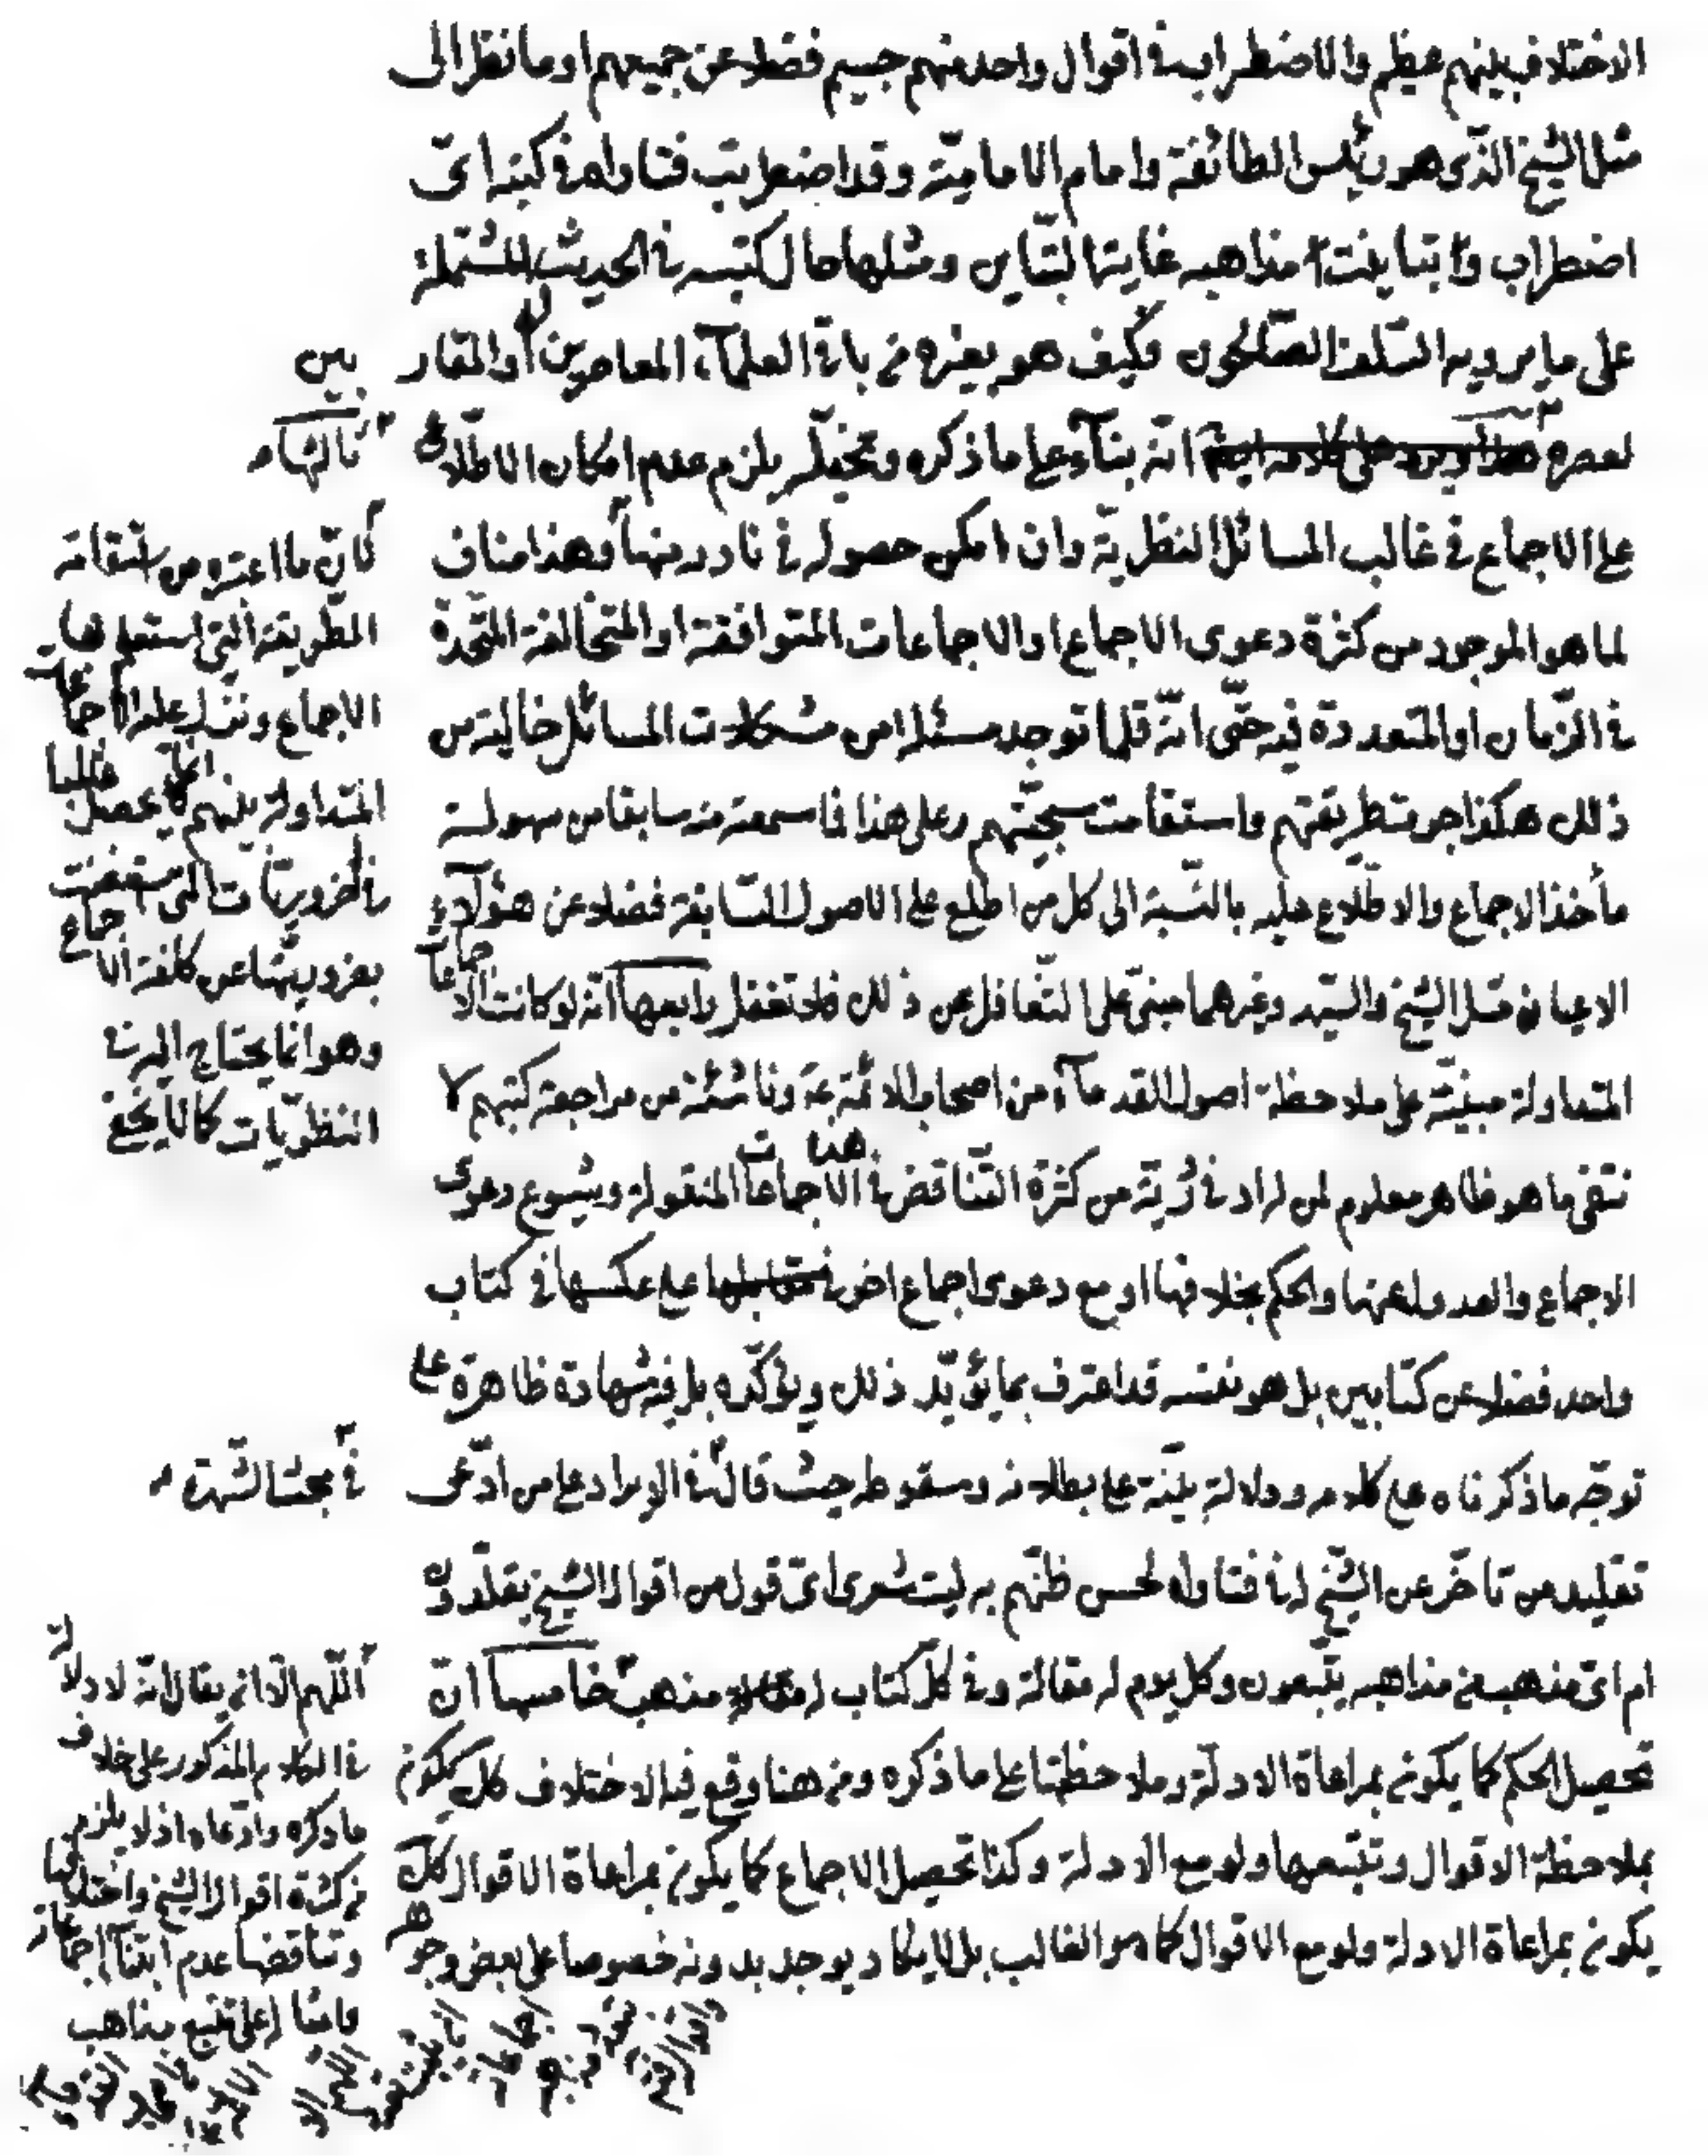 الاختلاف بينهم عظيم والاضطراب في اقوال واحد منهم جسيم فضلا عن جميعهم او ما نظر الى
مثل الشيخ الذى هو رئيس الطائفة وامام الامامية وقد اضطربت فتاواه في كتبه اىّ
اضطراب وتباينت مذاهبه غاية التباين ومثلها حال كتبه في الحديث المشتملة
على ما يرويه السلف الصالحون فكيف هو بغيره من باقى العلمآء المعاصرين له او المقاربين
لعصره ثالثها انّه بنآء على ما ذكره وتخيّله يلزم عدم امكان الاطلاع
على الاجماع في غالب المسائل النظرية وان امكن حصوله في نادر منها وهذا مناف
لما هو الموجود من كثرة دعوى الاجماع او الاجماعات المتوافقة او المتخالفة المتّحدة
في الزّمان او المتعددة فيه حتّى انّه قلما توجد مسئلة من مشكلات المسائل خالية من
ذلك هكذا جرت طريقتهم واستقامت سجيّتهم وعلى هذا فما سمعته منه سابقا من سهولة
مأخذ الاجماع والاطّلاع عليه بالنّسبة الى كل من اطلع على الاصول السّابقة فضلا عن هؤلآء
الاعيان مثل الشيخ والسّيد وغيرهما مبنىّ على التّغافل عن ذلك فلا تغفل رابعها انّه لو كانت الاجماعات
المتداولة مبنيّة على ملاحظة اصول القدمآء من اصحاب الائمّة ع وناشئة من مراجعة كتبهم لا
نتفى ما هو ظاهر معلوم لمن له ادنى رُية من كثرة التّناقض في هذه الاجماعات المنقولة وشيوع دعوى
الاجماع والعدول عنها والحكم بخلافها او مع دعوى اجماع اخر على عكسها في كتاب
واحد فضلا عن كتابين بل هو نفسه قد اعترف بما يؤيّد ذلك ويؤكّده بل فيه شهادة ظاهرة على
توجّه ما ذكرناه على كلامه ودلالة بيّنة على بطلانه وسقوطه حيث قال في الايراد على من ادّعى
تقليد من تاخّر عن الشّيخ له في فتاواه لحسن ظنّهم به ليت شعرى اىّ قول من اقوال الشيخ يقلّدون
ام اىّ مذهب من مذاهبه يتّبعون وكل يوم له مقالة وفى كلّ كتاب له مذهب خامسها انّ
تحصيل الحكم كما يكون بمراعاة الادلّة وملاحظتها على ما ذكره ومن هنا وقع فيه الاختلاف كك يكون
بملاحظة الاقوال وتتبّعها ولو مع الادلة وكذا تحصيل الاجماع كما يكون بمراعاة الاقوال كك
يكون بمراعاة الادلة ولو مع الاقوال كما هو الغالب بل لا يكاد يوجد بدونه خصوصا على بعض وجوهه
كانّ ما اعتبره من استقامة
الطّريقة التى استعملها
الاجماع ونزل عليه الاجماعات
المتداولة بينهم انّما يحصل غالبا
في الضروريّات التى استغنت
بضروريتها عن كلفة الاجماع
وهو انما يحتاج اليه في
النظريّات كما لا يخفى
في مبحث الشهرة
اللّهم الّا ان يقال انّه لا دلالة
في الكلام المذكور على خلاف
ما ذكره وادّعاه اذ لا يلزم
من كثرة اقوال الشيخ واختلافها
وتناقضها عدم ابتنآء اجماعاته